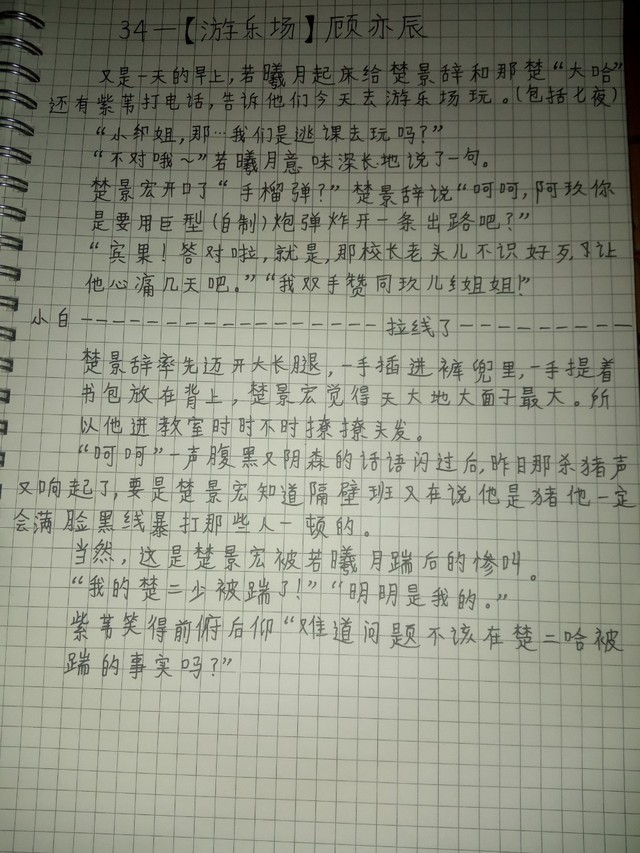 34—【游乐场】顾亦辰
又是一天的早上,若曦月起床给楚景辞和那楚“大哈”
还有紫苇打电话,告诉他们今天去游乐场玩。(包括七夜)
“小姐,那…我们是逃课去玩吗?”
“不对哦~”若曦月意味深长地说了一句。
楚景宏开口了“手榴弹?”楚景辞说“呵呵,阿玖你
是要用巨型(自制)炮弹炸开一条出路吧?”
“宾果!答对啦,就是,那校长老头儿不识好歹,让
他心痛几天吧。”“我双手赞同玖儿姐姐!”
小白----------------拉线了---------
楚景辞率先迈开大长腿,一手插进裤兜里,一手提着
书包放在背上,楚景宏觉得天大地大面子最大。所
以他进教室时时不时撩撩头发。
“呵呵”一声腹黑又阴森的话语闪过后,昨日那杀猪声
又响起了,要是楚景宏知道隔壁班又在说他是猪他一定
会满脸黑线暴打那些人一顿的。
当然,这是楚景宏被若曦月踹后的惨叫。
“我的楚二少被踹了!”“明明是我的。”
紫苇笑得前俯后仰“难道问题不该在楚二哈被
踹的事实吗?”